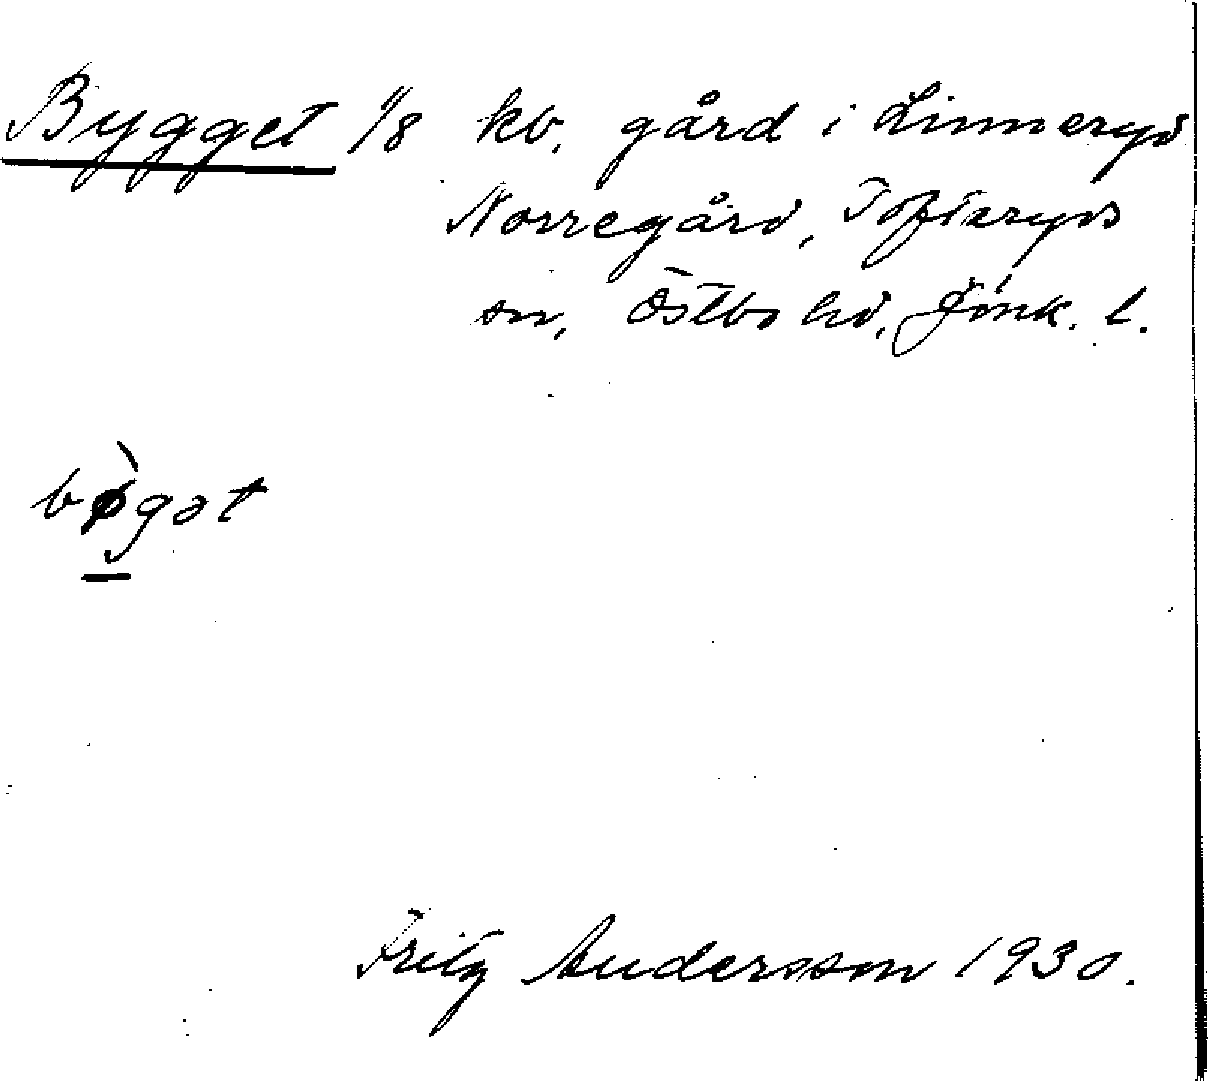 Bygget 1/8 kv. gård i Linneryd
Norregård, Tofteryds
sn, Östbo hd, Jönk. l.
bø̀gət
Fritz Andersson 1930.